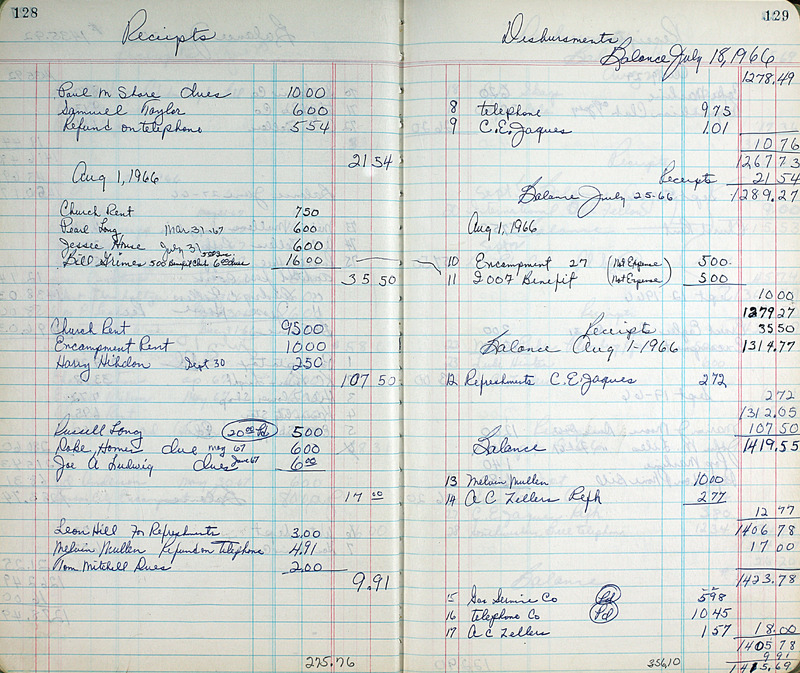 128
Receipts
Paul M Shore dues 10 00
Samuel Taylor 6 00
Refund on telephone 5 54
21 54
Aug 1, 1966
Church Rent 7 50
Pearl Long Mar. 31-67 6 00
Jessie House July 31 6 00
Bill Grimes 500 6 00 dues 16 00
35 50
Church Rent 95 00
Encampment Rent 10 00
Harry Hibdon Sept 30 2 50
107 50
Russell Long 20 00 Pd 5 00
Homer due may 67 6 00
Joe A Ludwig dues June 67 6 00
17 00
Leon Hill For Refreshments 3.00
Melvin Mullen Refund on Telephone 4.91
Tom Mitchell Dues 2.00
9.91
225.76
129
Disbursments
Balance July 18, 1966
1278.49
8 telephone 9 75
9 C.E. Jaques 1.01
10 76
1267 73
Receipts 21 54
Balance July 25-66 1289.27
Aug 1, 1966
10 Encampment 27 (Not Expense) 5 00
11 2007 Benefit (Not Expense) 5 00
10 00
1279 27
Receipts 35 50
Balance Aug 1-1966 1314.77
12 Refreshments C.E. Jaques 2 72
2 72
1312.05
107 50
Balance 1419.55
13 Melvin Mullen 10 00
14 A C Zellers Reph 2 77
12 77
1406 78
17 00
1423.78
15 Gas Service Co Pd 5 98
16 telephone Co Pd 10 45
17 A C Zellers 1 57 18.00
1405 78
9 91
356.10 1415.69